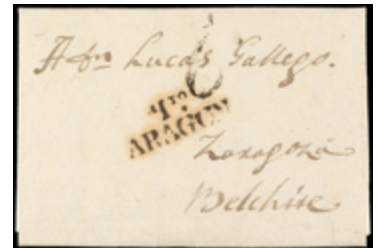 A Dn Lucas Gallego.
6
Tro.
ARAGON
Zaragoza
Belchite